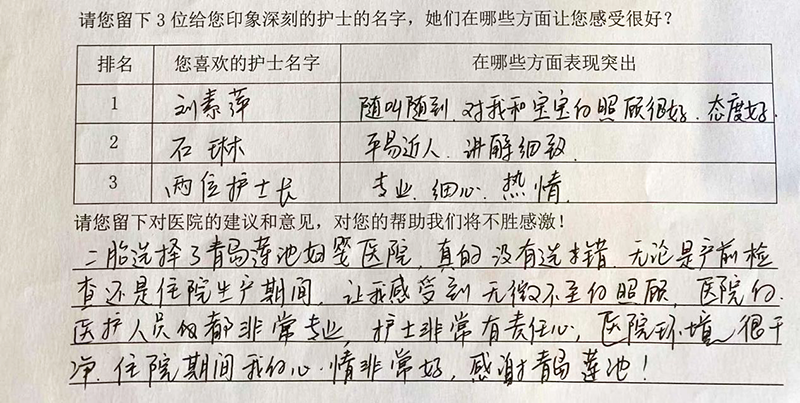 请您留下3位给您印象深刻的护士的名字，她们在哪些方面让您感受很好？
排名 您喜欢的护士名字 在哪些方面表现突出
1 刘素萍 随叫随到、对我和宝宝的照顾很好、态度好.
2 石琳 平易近人、讲解细致.
3 两位护士长 专业、细心、热情.
请您留下对医院的建议和意见，对您的帮助我们将不胜感激！
二胎选择了青岛莲池妇婴医院，真的没有选择错.无论是产前检
查还是住院生产期间，让我感受到无微不至的照顾，医院的
医护人员都非常专业，护士非常有责任心，医院环境很干
净.住院期间我的心情非常好，感谢青岛莲池！